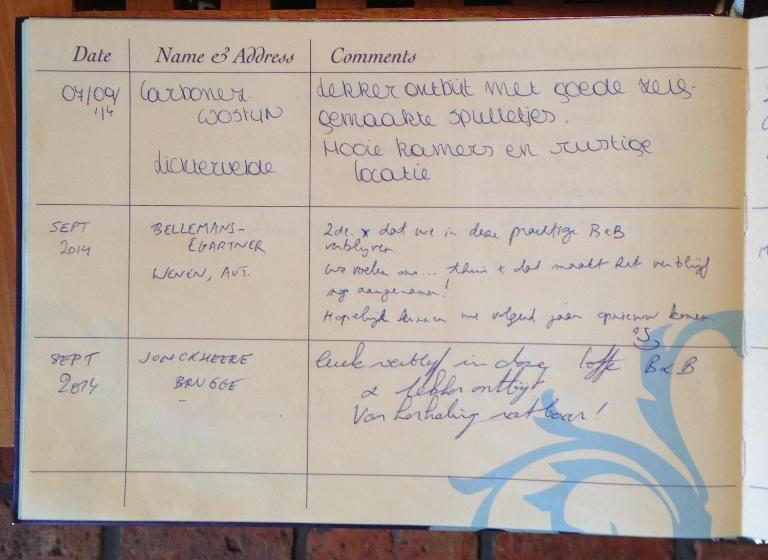 Date Name & Address Comments
07/09/ '14
Carbonez-
Wostijn
Lichtervelde
Lekker ontbijt met goede zelf-
gemaakte spulletjes.
Mooie kamers en rustige
locatie
SEPT
2014
BELLEMANS-
EGARTNER
WENEN, AUT.
2de x dat we in deze prachtige B&B
verblijven.
We voelen ons... thuis & dat maakt het verblijf
nog aangenamer!
Hopelijk kunnen we volgend jaar opnieuw komen.
SEPT
2014
JONCKHEERE
BRUGGE
Leuk verblijf in deze toffe B&B
& lekker ontbijt
Voor herhaling vatbaar!